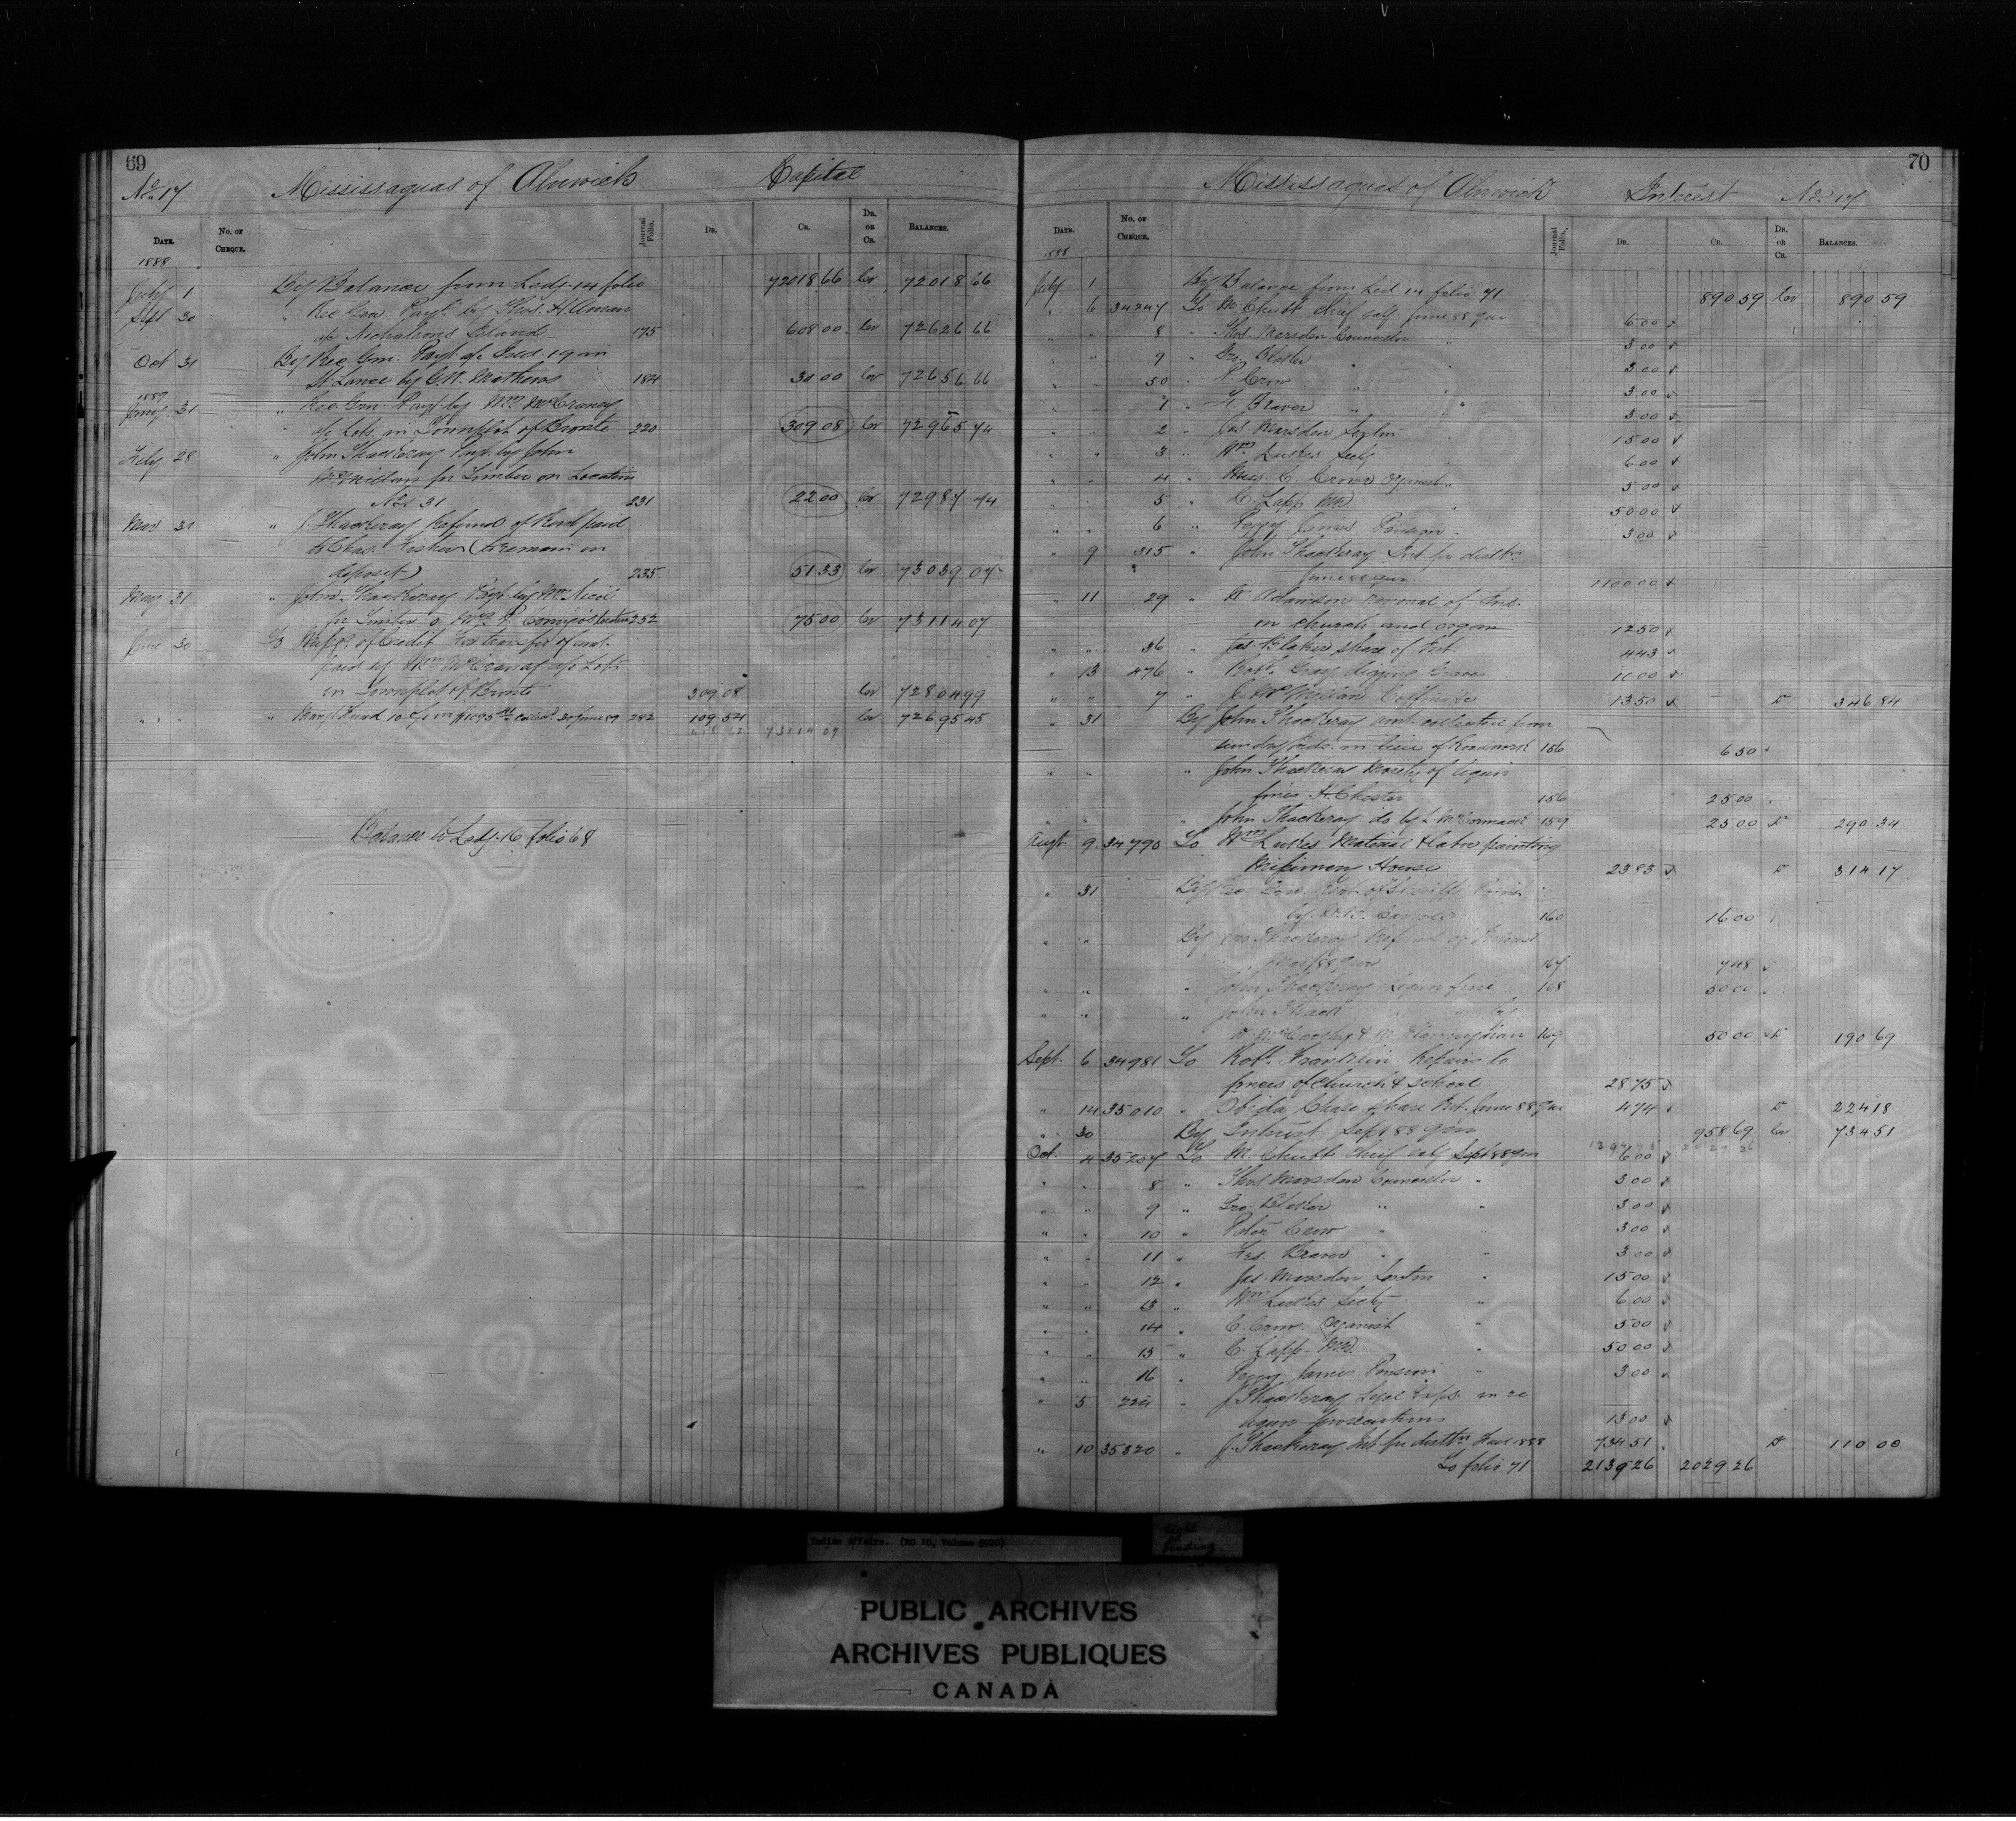 69
No 17 Mississaguas of Alnwick Capital
Date. No. of Cheque. Journal Folio. Dr. Cr. Dr. or Cr. Balances.
1888
July 1 By Balance from Ledg. 14 folio 72018 66 Cr 72018 66
Sept 30 " Rec Gen. Payt. by Thos. H.
a/c Nicholsons Island 175 608 00 Cr 72626 66
Oct 31 By Rec. Gen. Payt. a/c Isld. 19 in
St. Lawce by C.W. Mathews 184 30 00 Cr 72656 66
1889
Jany 31 " Rec. Gen. Payt. by Wm McCraney
a/c Lots in Townplot of Bronte 220 309 08 Cr 72965 74
Feby 28 " John Thackeray Payt. by John
McMillan for Timber on Location
No. 31 231 22 00 Cr 72987 74
Mar 31 " J. Thackeray Refund of Rent paid
to Chas. Fisher (to remain on
deposit) 235 51 33 Cr 73039 07
May 31 " John Thackeray Payt. by Wm Nicol
for Timber location 252 75 00 Cr 73114 07
June 30 To of Credit for transfer of amt.
paid by Wm McCraney a/c Lots
in Townplot of Bronte 309 08 Cr 72804 99
" " " Mangt Fund 10% on $1095 30 June 89 282 109 54 Cr 72695 45
73114 07
Balance to Ledg. 16 folio 68
70
Mississaguas of Alnwick Interest No 17
Date. No. of Cheque. Journal Folio. Dr. Cr. Dr. or Cr. Balances.
1888
July 1 By Balance from Led. 14 folio 71 890 59 Cr 890 59
" 6 34247 To M. Chubb Chief saly. June 88 qur 6 00
" " 8 " Thos. Marsden Councillor " 3 00
" " 9 " Geo. Blaker " " 3 00
" " 50 " P. Crow " " 3 00
" " 1 " F. Beaver " " 3 00
" " 2 " Jas. Marsden Sexton " 15 00
" " 3 " Wm Lukes Secty " 6 00
" " 4 " Miss C. Crow Organist " 5 00
" " 5 " C. Lapp MD. " 50 00
" " 6 " Peggy James Pension " 3 00
" 9 315 " John Thackeray Int. for distbn.
June 88 qur. 1100 00
" 11 29 " W. Adamson renewal of Ins.
on church and organ 12 50
" " 36 " Jas Blaker share of Int. 4 43
" 13 476 " Robt. Gray digging Grave 10 00
" " 7 " J. McMillan Coffins &c 13 50 Dr 346 84
" 31 By John Thackeray amt. collected from
sundry Inds. in lieu of Roadwork 156 6 50
" " " John Thackeray Moiety of liquor
fines H. Chester 156 25 00
" " " John Thackeray do by L McCormack 159 25 00 Dr 290 34
Augt 9 34790 To Wm Lukes Material & labor painting
Missionary House 23 83 Dr 314 17
" 31 By Rec. Gen. Rent of
by 160 16 00
" " By Jno Thackeray Refund of Interest
Mar/88 Qur 167 7 48
" " " John Thackeray Liquor fine 168 50 00
" " " John Thack " " by
169 50 00 Dr 190 69
Sept. 6 34981 To Robt. Franklin Repairs to
fences of church & school 28 75
" 14 35010 " Obida Chase share Int. June 88 Qur 4 74 Dr 224 18
" 30 By Interest Sept 88 Qur 958 69 Cr 734 51
Oct. 4 35207 To M. Chubb Chief saly Sept 88 Qur 6 00
" " 8 " Thos Marsden Councillor " 3 00
" " 9 " Geo. Blaker " " 3 00
" " 10 " Peter Crow " " 3 00
" " 11 " Fras. Beaver " " 3 00
" " 12 " Jas. Marsden Sexton " 15 00
" " 13 " Wm Lukes Secty " 6 00
" " 14 " C. Crow Organist " 5 00
" " 15 " C. Lapp MD. " 50 00
" " 16 " Peggy James Pension " 3 00
" 5 224 " J. Thackeray Legal Exps. in re
liquor prosecutions 13 00
" 10 35820 " J. Thackeray Int. for distbn 1888 734 51 Dr 110 00
To folio 71 2139 26 2029 26
Indian Affairs. (RG 10, Volume 5920)
tight
binding.
PUBLIC ARCHIVES
ARCHIVES PUBLIQUES
CANADA